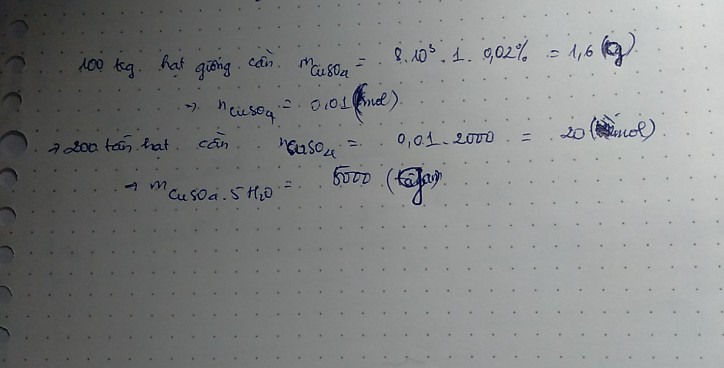 100 kg hạt giống cần mCuSO4 = 8.10³.1.0,02% = 1,6 (g)
→ nCuSO4 = 0,01 (mol).
→ 200 tấn hạt cần nCuSO4 = 0,01.2000 = 20 (mol)
→ mCuSO4.5H2O = 5000 (gam)